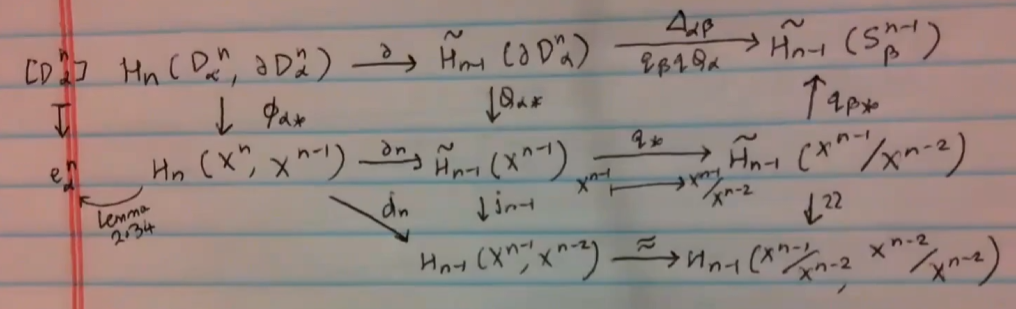 Δαβ
[Dⁿα] Hₙ(Dαⁿ, ∂Dαⁿ) —∂→ H̃ₙ₋₁(∂Dⁿα) ——→ H̃ₙ₋₁(Sβⁿ⁻¹)
qβqQα
↧ ↓ ϕα* ↓Qα* ↑ qβ*
eαⁿ Hₙ(Xⁿ, Xⁿ⁻¹) —∂n→ H̃ₙ₋₁(Xⁿ⁻¹) —q*→ H̃ₙ₋₁(Xⁿ⁻¹/Xⁿ⁻²)
Xⁿ⁻¹ ↦ Xⁿ⁻¹/Xⁿ⁻²
Lemma
2.34
↘ dn ↓jn-1 ↓≅
Hₙ₋₁(Xⁿ⁻¹, Xⁿ⁻²) —≈→ Hₙ₋₁(Xⁿ⁻¹/Xⁿ⁻², Xⁿ⁻²/Xⁿ⁻²)